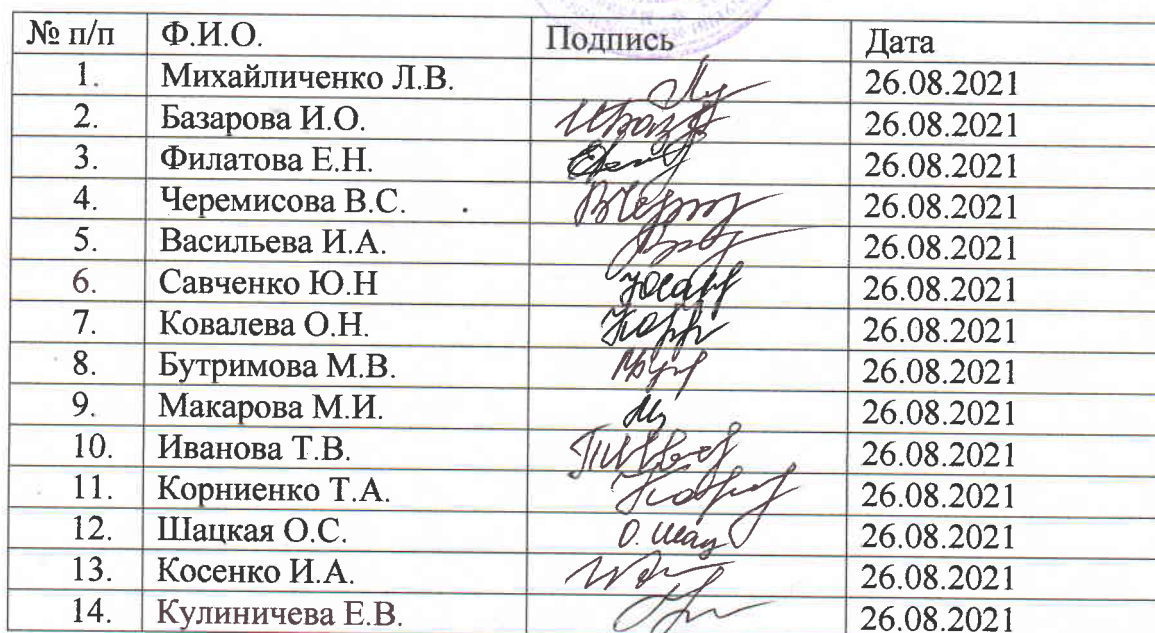 № п/п Ф.И.О. Подпись Дата
1. Михайличенко Л.В. 26.08.2021
2. Базарова И.О. 26.08.2021
3. Филатова Е.Н. 26.08.2021
4. Черемисова В.С. 26.08.2021
5. Васильева И.А. 26.08.2021
6. Савченко Ю.Н 26.08.2021
7. Ковалева О.Н. 26.08.2021
8. Бутримова М.В. 26.08.2021
9. Макарова М.И. 26.08.2021
10. Иванова Т.В. 26.08.2021
11. Корниенко Т.А. 26.08.2021
12. Шацкая О.С. О. Шац 26.08.2021
13. Косенко И.А. 26.08.2021
14. Кулиничева Е.В. 26.08.2021